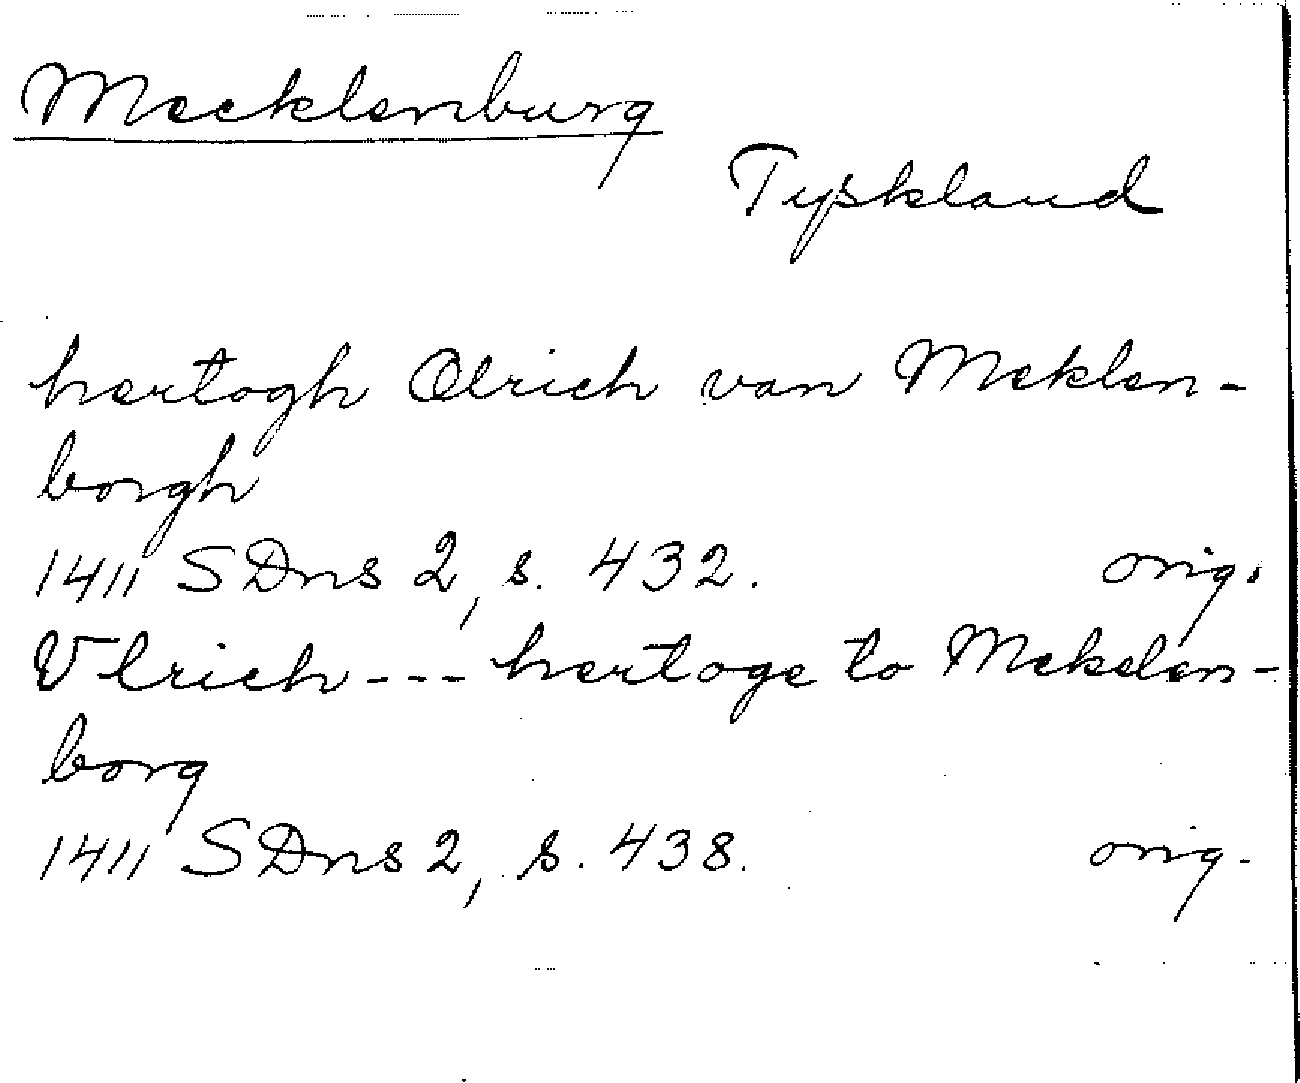 Mecklenburg
Tyskland
hertogh Olrich van Meklen-
borgh
1411 SDns 2, s. 432. orig.
Vlrich --- hertoge to Mekelen-
borg
1411 SDns 2, s. 438. orig.